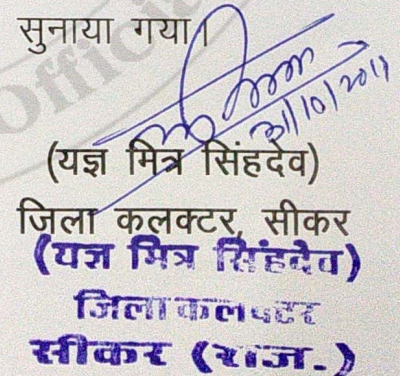 सुनाया गया।
Official
31/10/2019
(यज्ञ मित्र सिंहदेव)
जिला कलक्टर, सीकर
(यज्ञ मित्र सिंहदेव)
जिला कलक्टर
सीकर (राज.)